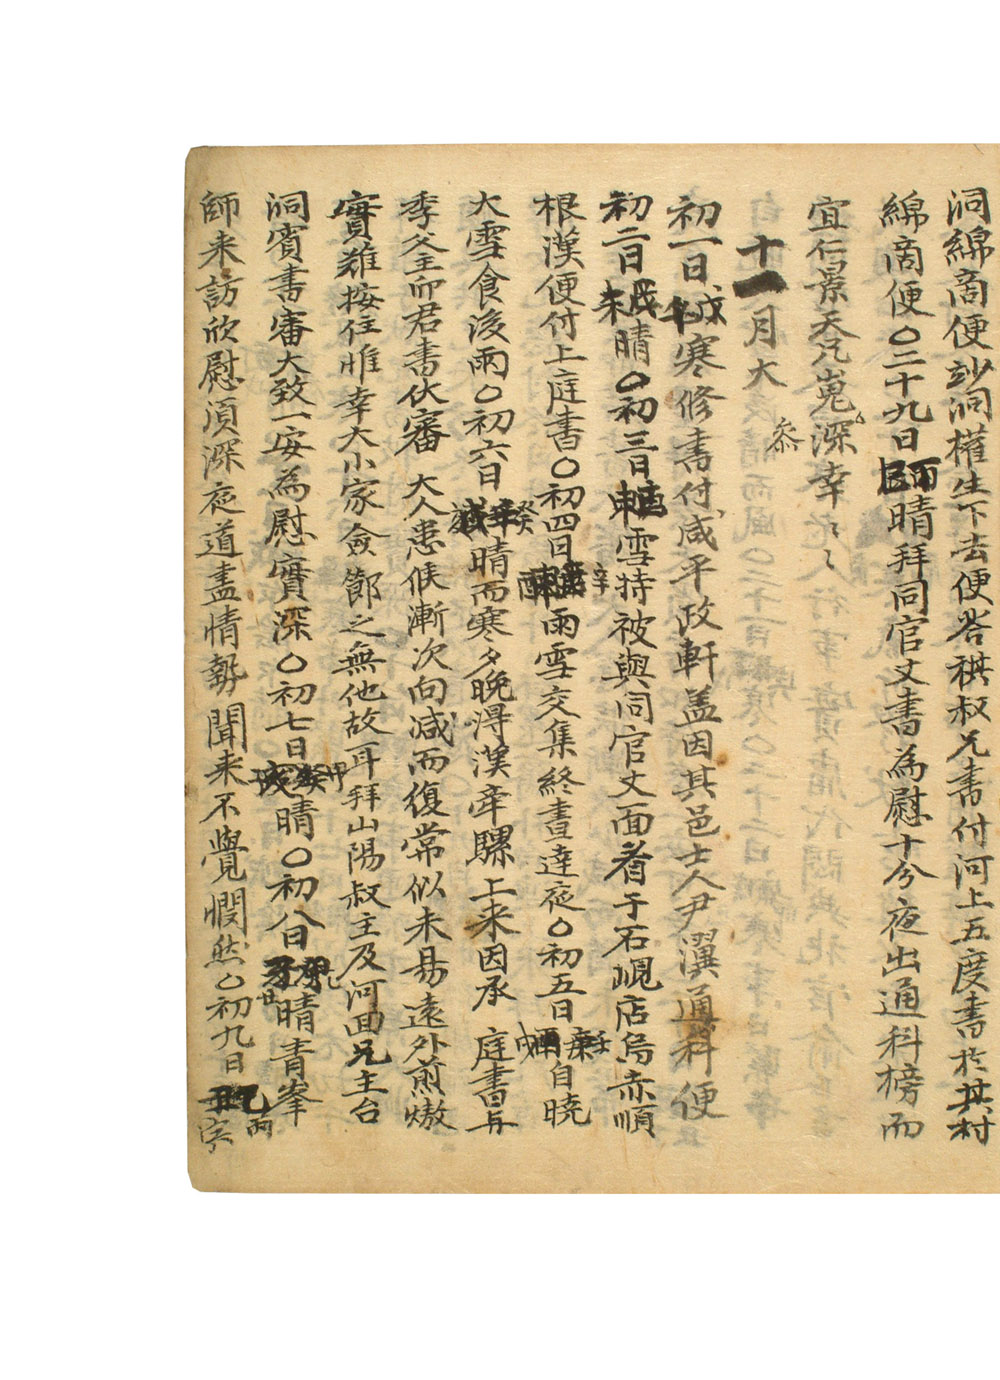 洞綿商便玅洞權生下去便答祺叔兄書付河上五度書於其村
綿商便〇二十九日晴拜同官丈書為慰十分夜出通科榜而
宜仁景天凡嵬參深幸〻
十一月大
初一日戊寒修書付咸平政軒盖因其邑士人尹㵢通科便
初二日晴〇初三日雪特被與同官丈面看于石峴店烏赤順
根漢便付上庭書〇初四日雨雪交集終晝達夜〇初五日自曉
大雪食後雨〇初六日癸晴而寒夕晚得漢牽騾上來因承 庭書与
季父主卹君書伏審 大人患候漸次向减而復常似未易遠外煎熬
實難按住惟幸大小家僉節之無他故耳拜山陽叔主及河回兄主台
洞賓書審大致一安為慰實深〇初七日晴〇初八日晴青峯
師来訪欣慰湏深夜道盡情勢聞来不覺憫然〇初九日